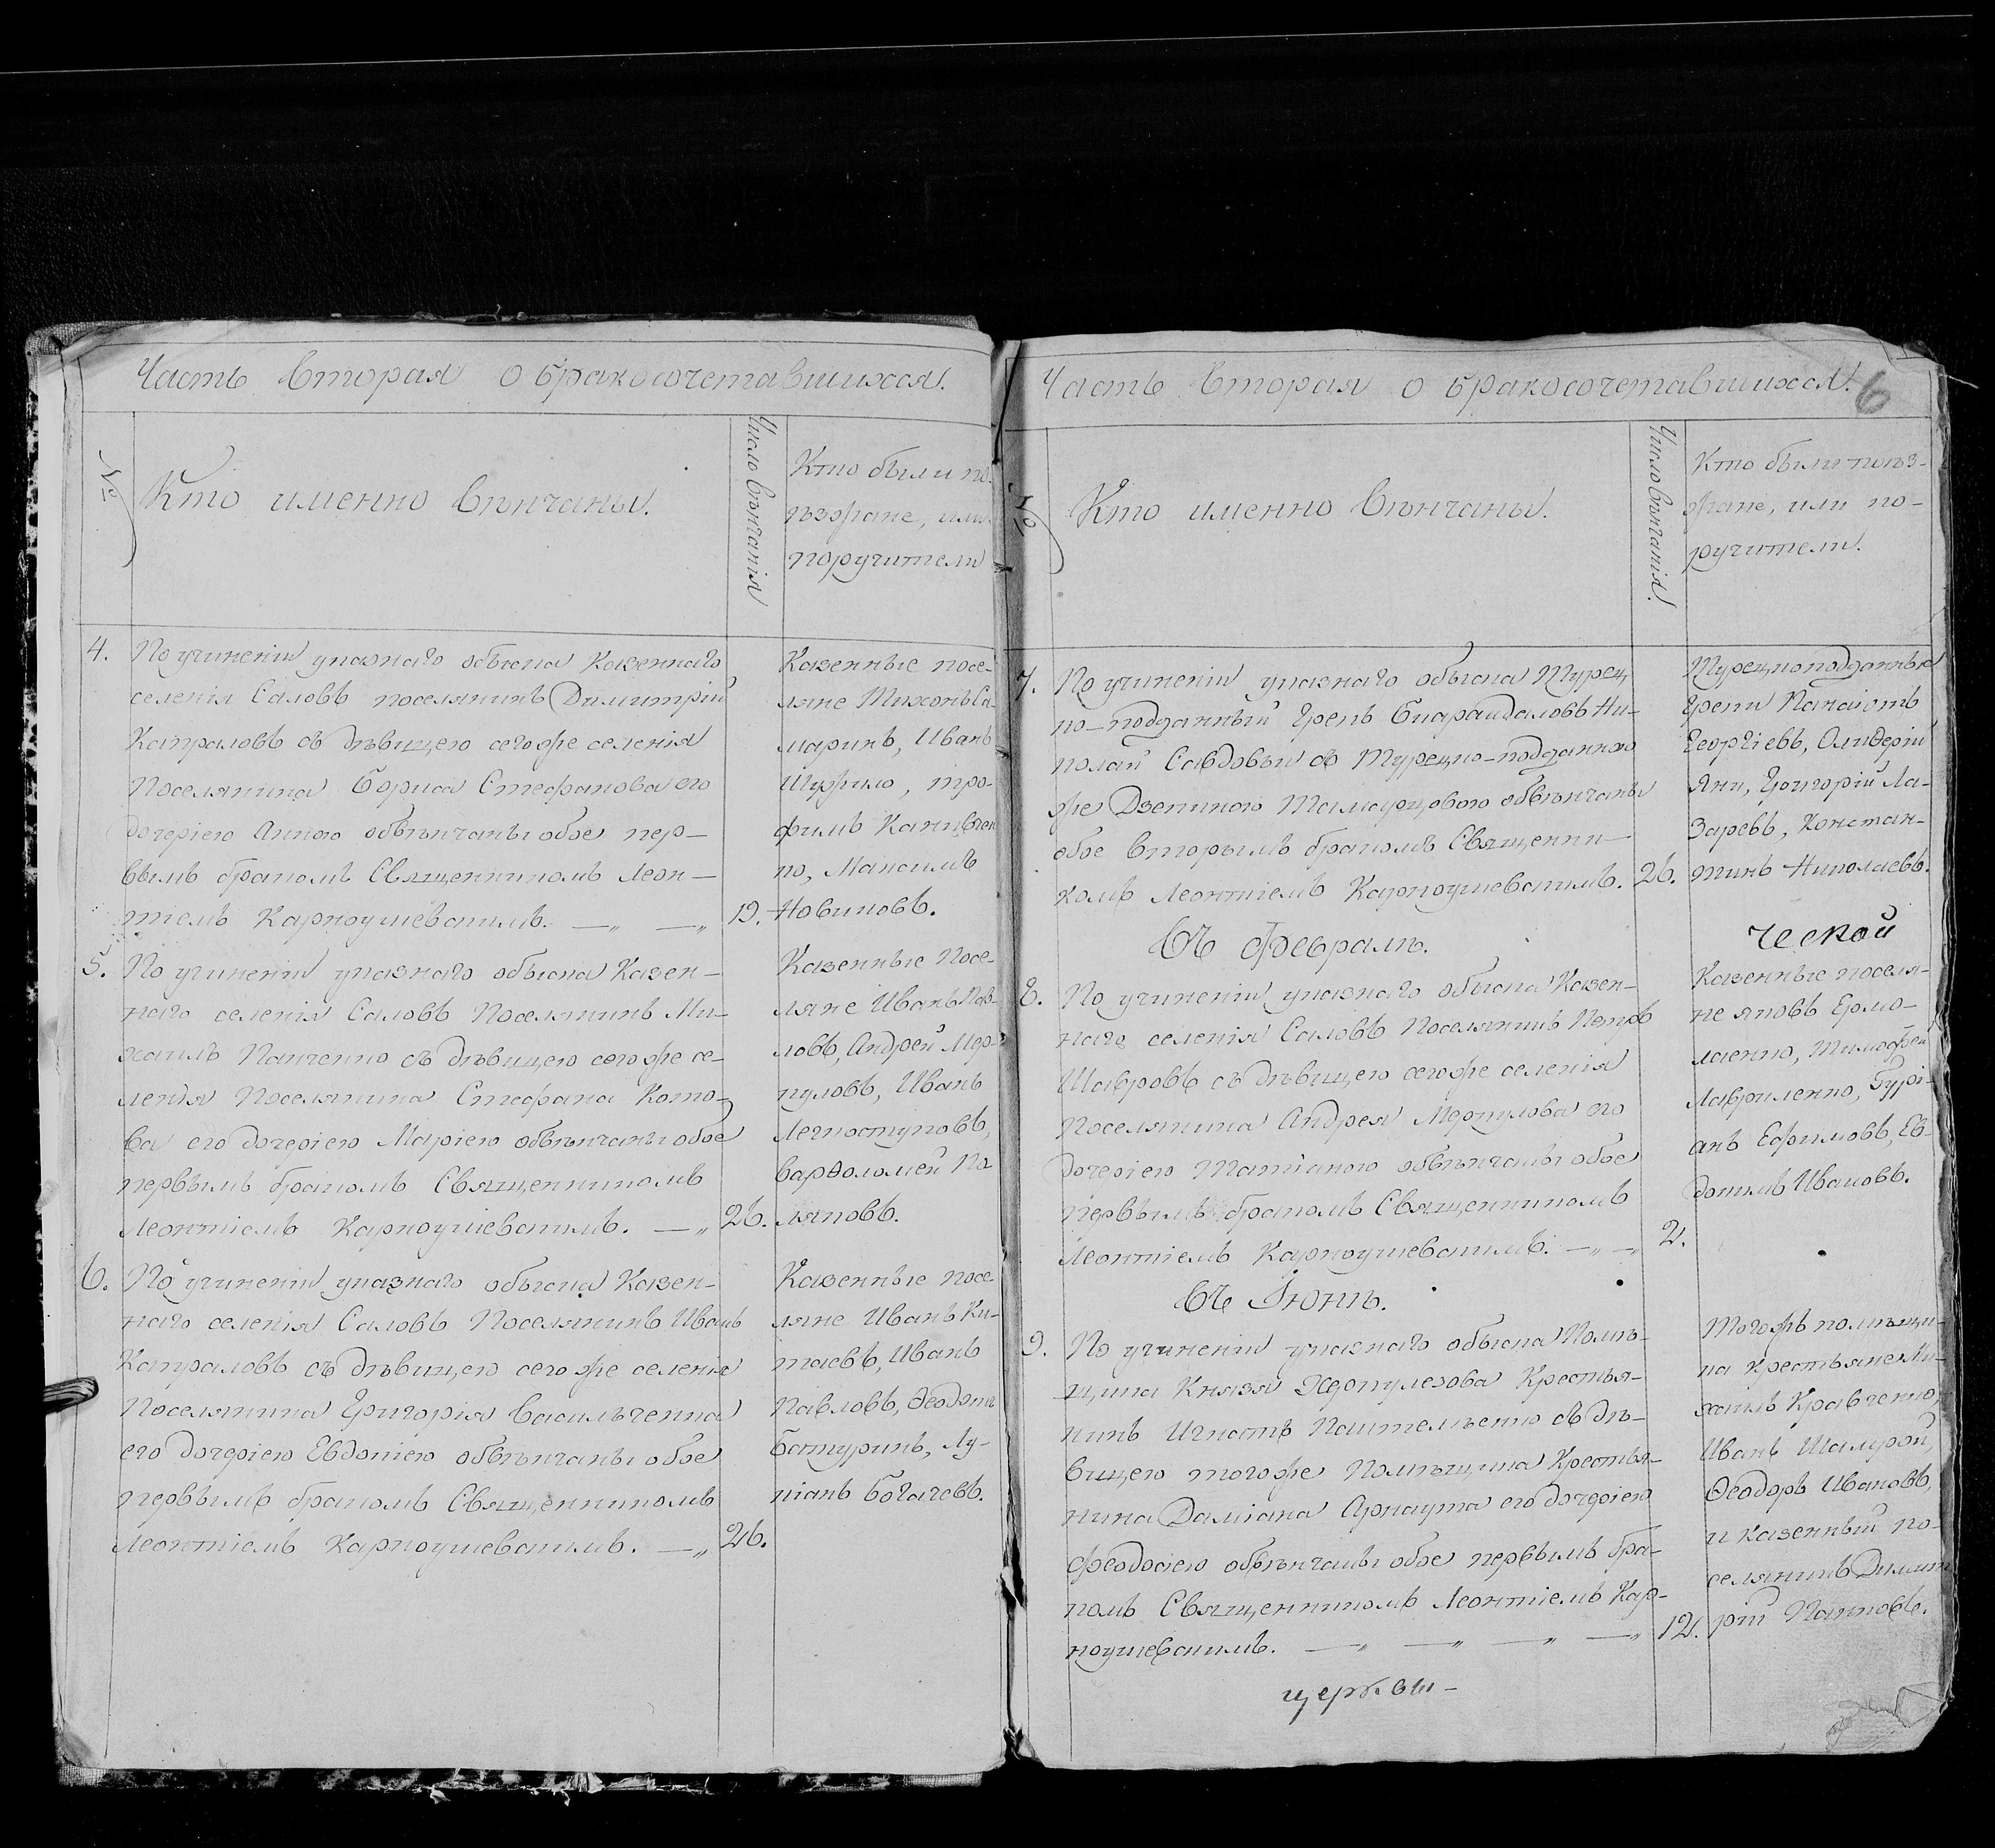 Часть вторая о бракосочетавшихся.
№
Кто именно вѣнчаны.
Число вѣнчанія
Кто были по-
ѣзжане, или
поручители
4. По учиненіи указнаго обыска казеннаго
селенія Саловъ поселянинъ Димитрій
Капраловъ съ дѣвицею сегоже селенія
Поселянина Бориса Стефанова его
дочеріею Анною обвѣнчаны обое пер-
вымъ бракомъ Священникомъ Леон-
тіемъ Карноушевскимъ. 19.
Казенные посе-
ляне Тихонъ Са-
маринъ, Иванъ
тро-
фимъ
ко, Максимъ
Новиковъ.
5. По учиненіи указнаго обыска Казен-
наго селенія Саловъ Поселянинъ Ми-
хаилъ Панченко съ дѣвицею сегоже се-
ленія Поселянина Стефана Кото-
ва его дочеріею Маріею обвѣнчаны обое
первымъ бракомъ Священникомъ
Леонтіемъ Карноушевскимъ. 26.
Казенные Посе-
ляне Иванъ Пав-
ловъ, Андрей Мер-
куловъ, Иванъ
Легкоступовъ,
Варѳоломей По-
ляковъ.
6. По учиненіи указнаго обыска Казен-
наго селенія Саловъ Поселянинъ Иванъ
Капраловъ съ дѣвицею сегоже селенія
Поселянина Григорія Василъченка
его дочеріею Евдокіею обвѣнчаны обое
первымъ бракомъ Священникомъ
Леонтіемъ Карноушевскимъ. 26.
Казенные посе-
ляне Иванъ Ки-
таевъ, Иванъ
Павловъ, Ѳеодотъ
Батуринъ, Лу-
кіанъ Богачевъ.
Часть вторая о бракосочетавшихся.
6
№
Кто именно вѣнчаны.
Число вѣнчанія.
Кто были поѣз-
жане, или по-
ручители.
7. По учиненіи указнаго обыска Турец
ко-подданный Грекъ Ни-
колай съ Турецко-подданною
же обвѣнчаны
обое вторымъ бракомъ Священни-
комъ Леонтіемъ Карноушевскимъ. 26.
Турецкоподданные
Греки Панаіотъ
Георгіевъ,
Яни, Григорій Ла-
заревъ, Констан-
тинъ Николаевъ.
Въ Февралѣ.
ческой
8. По учиненіи указнаго обыска Казен-
наго селенія Саловъ Поселянинъ Петръ
Шавровъ съ дѣвицею сегоже селенія
Поселянина Андрея Меркулова его
дочеріею Татіаною обвѣнчаны обое
первымъ бракомъ Священникомъ
Леонтіемъ Карноушевскимъ. 2.
Казенные поселя-
не яковъ Ермо-
лаенко, Тимофей
Лавриленко, Гурі-
анъ Ефимовъ, Ев-
докимъ Ивановъ.
Въ Іюнѣ.
9. По учиненіи указнаго обыска Помѣ-
щика Князя Жеркулезова Крестья-
нинъ съ дѣ-
вицею тогоже Помѣщика Крестья-
нина Даміана Арнаута его дочеріею
Феодосіею обвѣнчаны обое первымъ бра-
комъ Священникомъ Леонтіемъ Кар-
ноушевскимъ. 12.
Тогожъ помѣщи-
ка крестьяне Ми-
хаилъ Кравченко,
Иванъ
Ѳеодоръ Ивановъ,
и казенный по-
селянинъ Димит
рій
церкви-